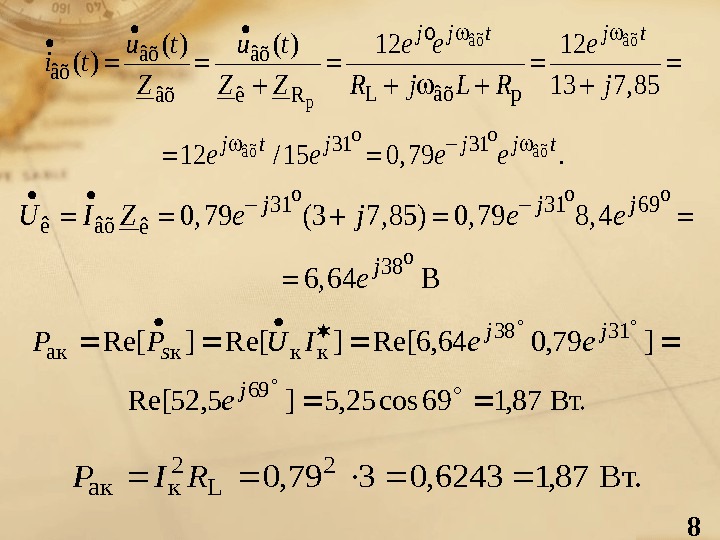 i̇_âõ(t) = u̇_âõ(t)/Z_âõ = u̇_âõ(t)/(Z_ê + Z_Rр) = 12e^{jo}e^{jω_âõ t}/(R_L + jω_âõ L + R_р) = 12e^{jω_âõ t}/(13 + j7,85) =
= 12e^{jω_âõ t} / 15e^{j31°} = 0,79e^{−j31°}e^{jω_âõ t}.
U̇_ê = İ_âõ Z_ê = 0,79e^{−j31°}(3 + j7,85) = 0,79e^{−j31°}8,4e^{j69°} =
= 6,64e^{j38°} В
P_ак = Re[Ṗ_sк] = Re[U̇_к I_к^★] = Re[6,64e^{j38°}0,79e^{j31°}] =
Re[52,5e^{j69°}] = 5,25cos69° = 1,87 Вт.
P_ак = I_к^2 R_L = 0,79^2 · 3 = 0,6243 = 1,87 Вт.
8